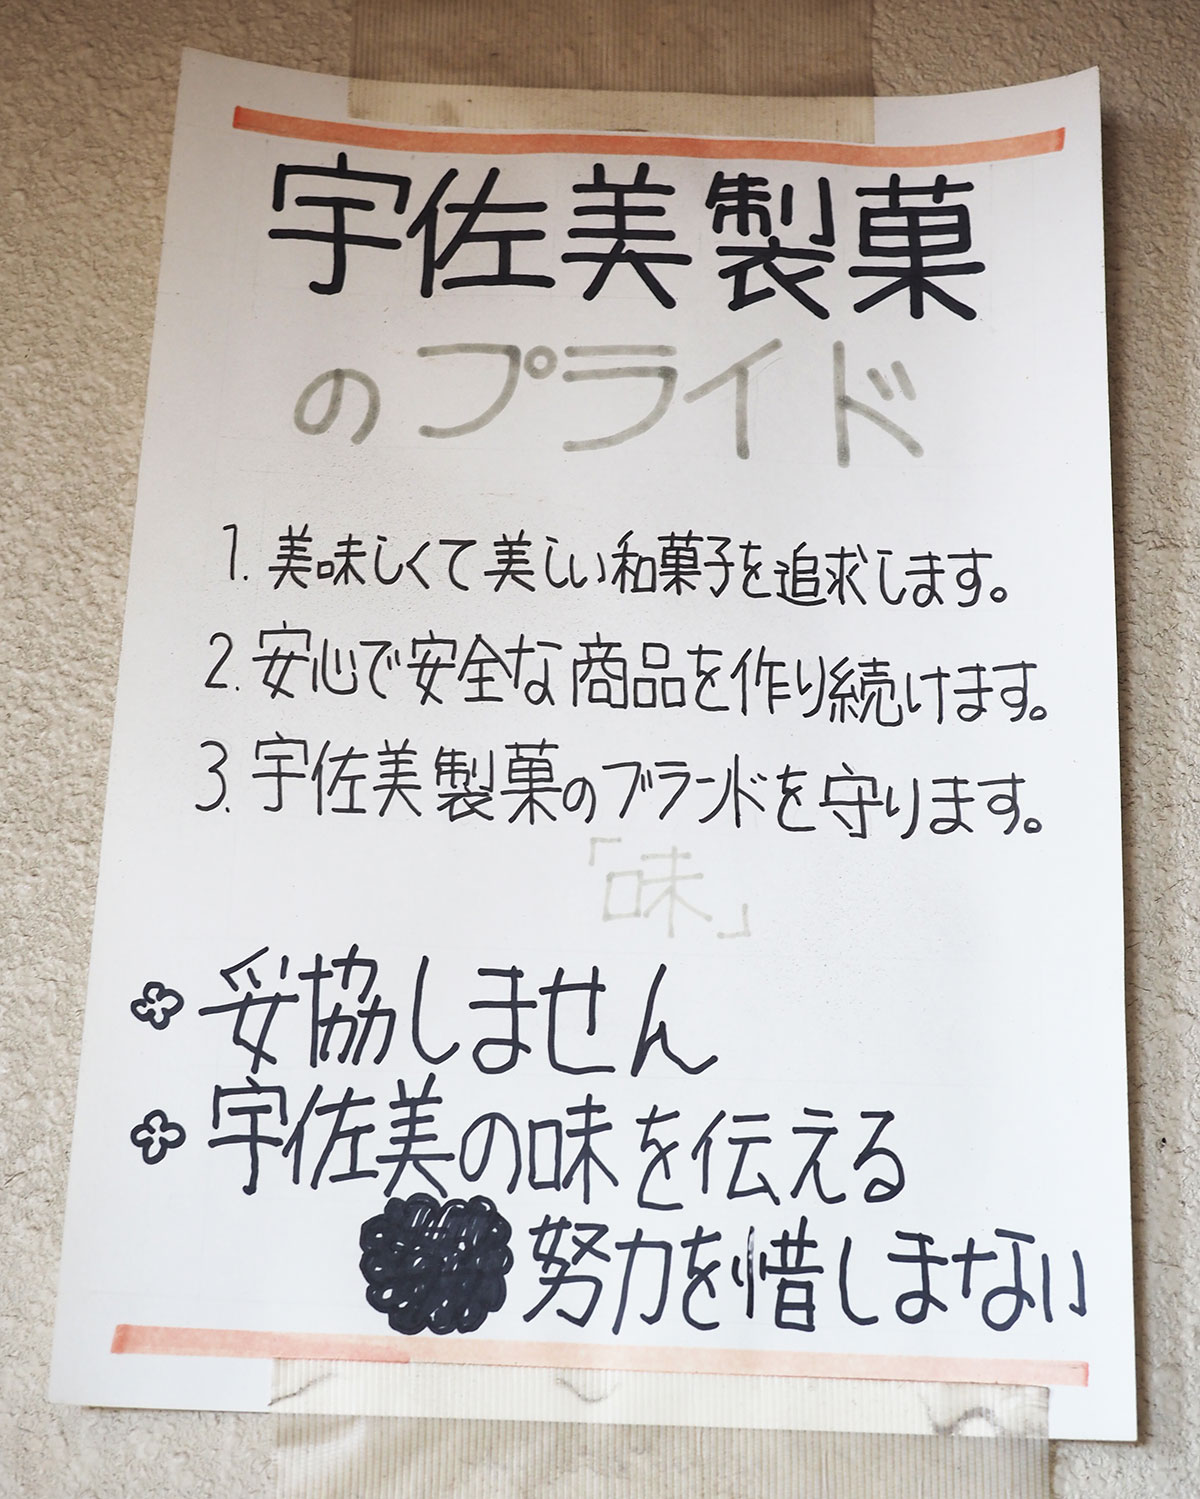 宇佐美製菓
のプライド
1. 美味しくて美しい和菓子を追求します。
2. 安心で安全な商品を作り続けます。
3. 宇佐美製菓のブランドを守ります。
「味」
妥協しません
宇佐美の味を伝える
努力を惜しまない